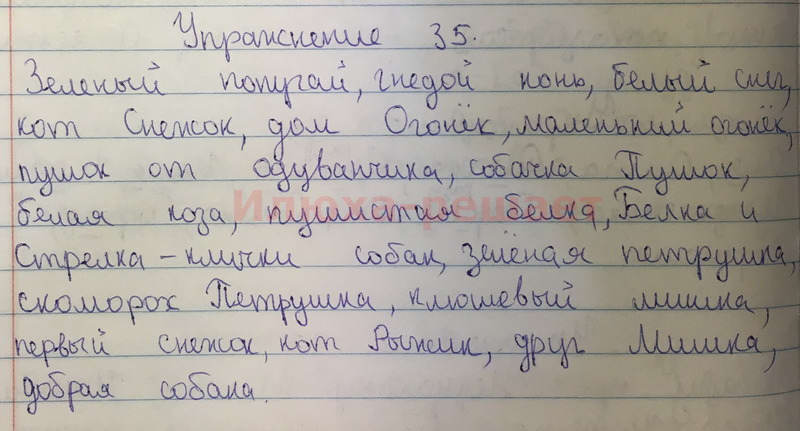 Упражнение 35.
Зеленый попугай, гнедой конь, белый снег,
кот Снежок, дом Огонёк, маленький огонёк,
пушок от одуванчика, собачка Пушок,
белая коза, пушистая белка, Белка и
Илюха-решает
Стрелка – клички собак, зелёная петрушка,
скоморох Петрушка, плюшевый мишка,
первый снежок, кот Рыжик, друг Мишка,
добрая собака.